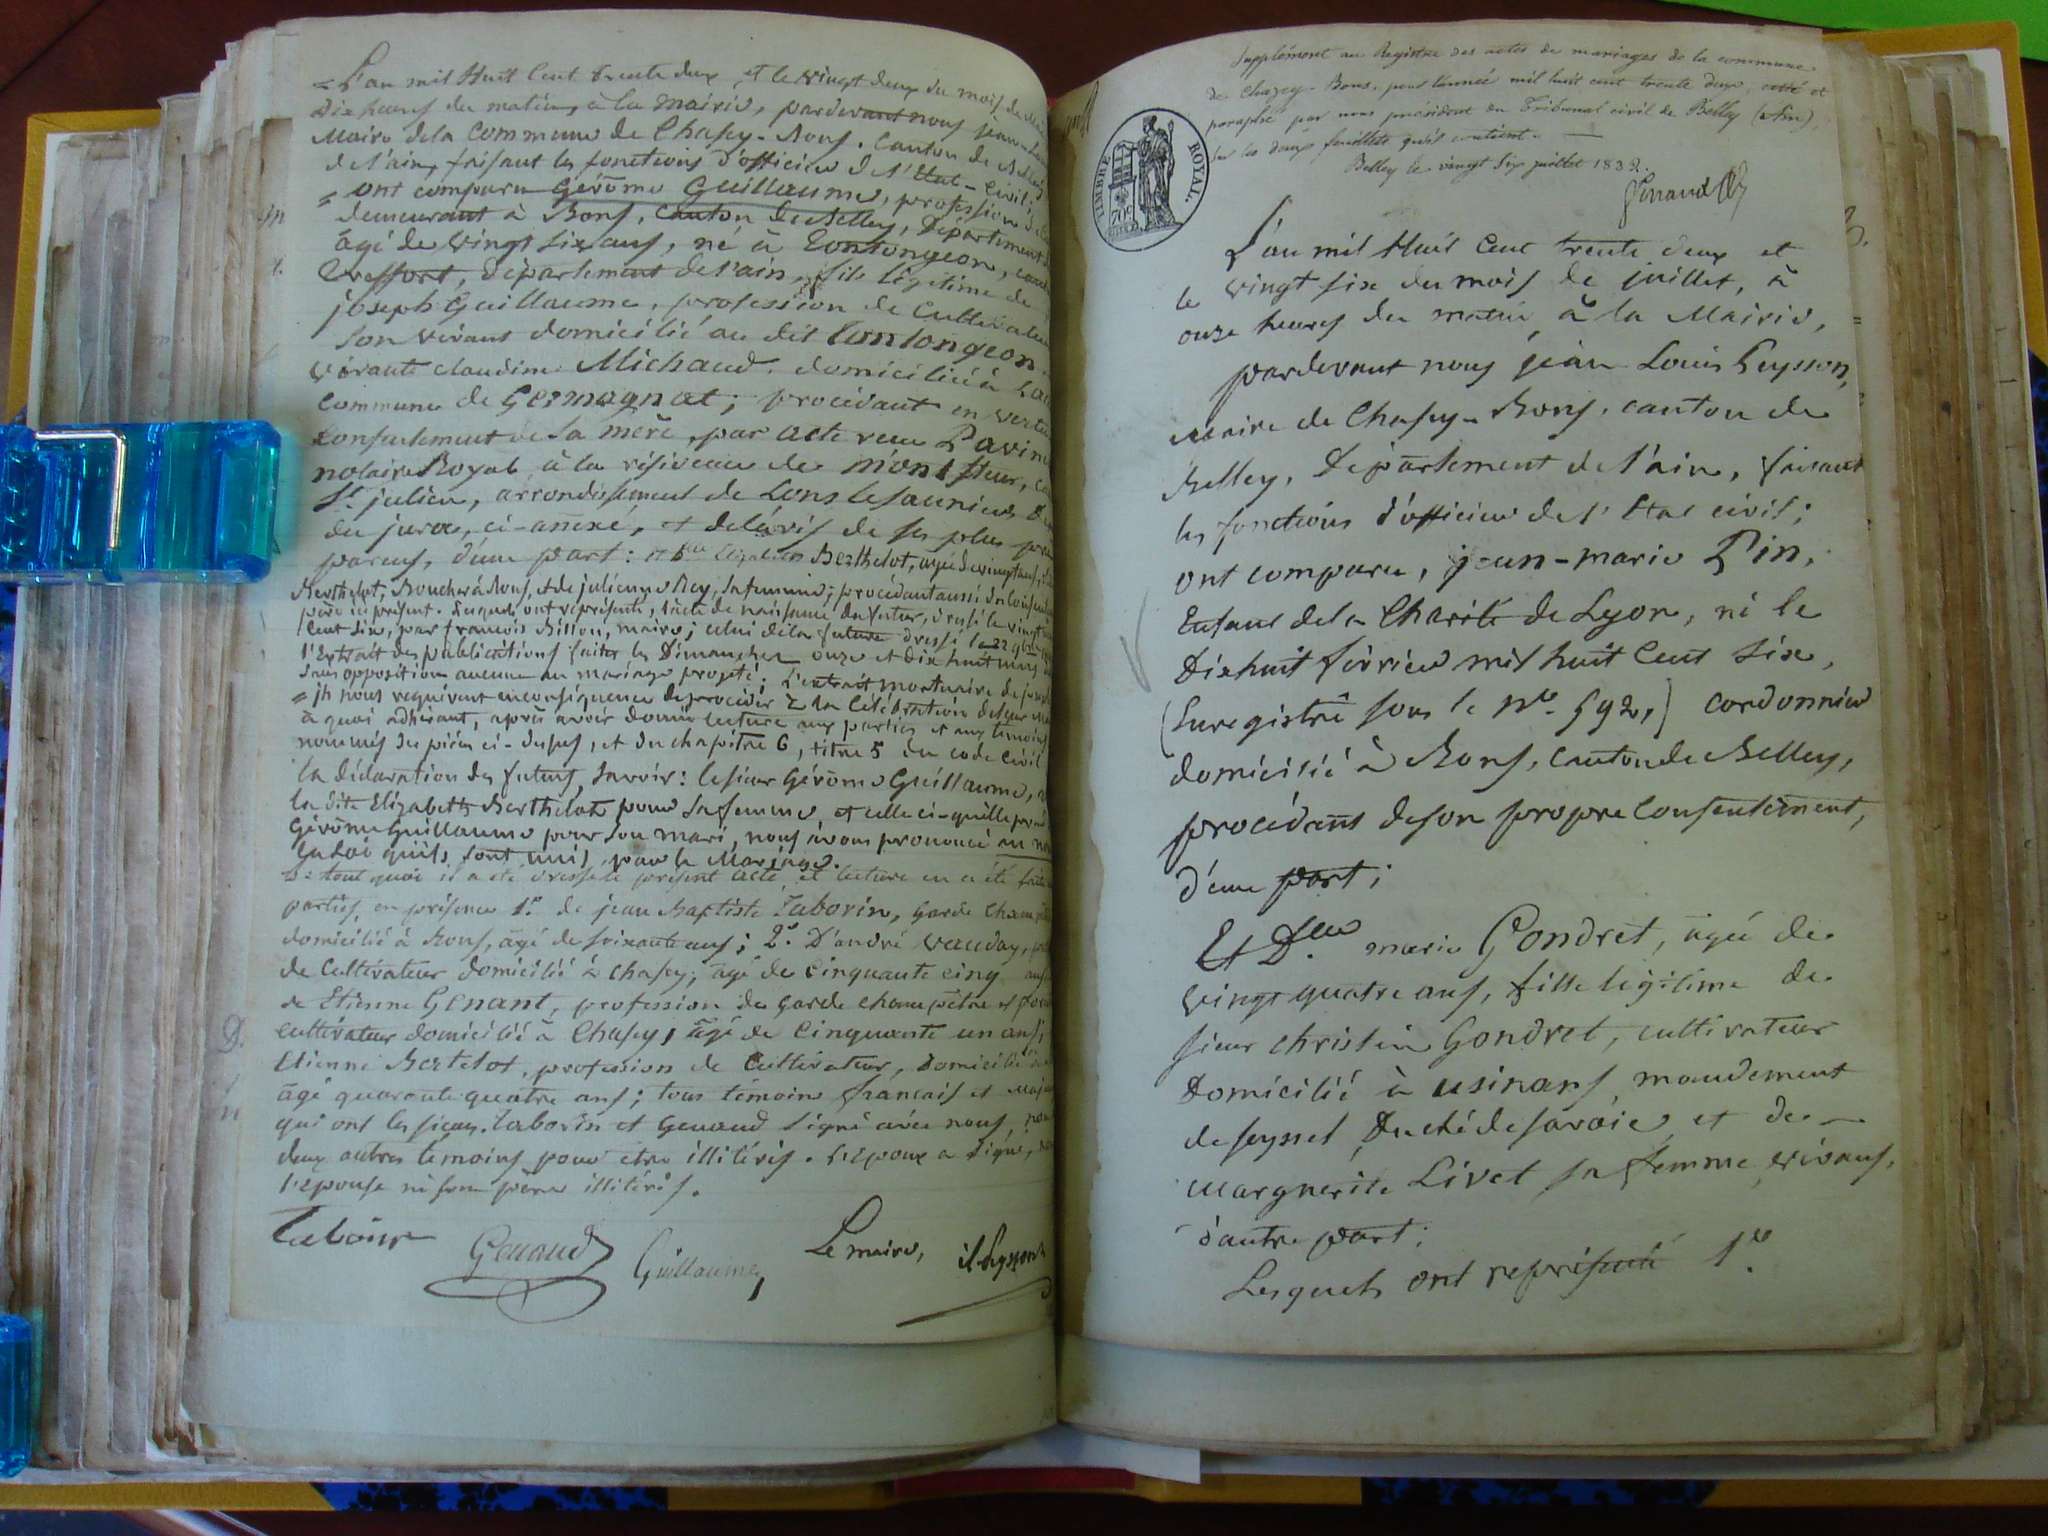 = L'an mil Huit Cent trente deux, et le vingt deux du mois de
Dix heures du matin, à la Mairie, pardevant nous jean
Maire de la commune de Chasey-Bons, Canton de Belley
de l'ain, faisant les fonctions d'officier de l'Etat-Civil;
= ont comparu Gérôme Guillaume, profession
demeurant à Bons, canton de Belley, Département
âgé de vingt six ans, né à Lonlongeon,
Treffort, département de l'ain, fils légitime de
joseph Guillaume, profession de Cultivateur
son vivant domicilié au dit Lonlongeon
vivante claudine Michaud, domiciliée à
commune de Germagnat; procédant en vertu
consentement de sa mère, par acte reçu Pavin
notaire Royal à la résidence de
St. julien, arrondissement de Lons le saunier
du jura, ci-annexé, et de l'avis de ses plus
parens, d'une part: et Dlle Elizabeth Berthelot, agée de vingt ans,
Berthelot, Boucher à Bons, et de julienne Rey, sa femme; procédant aussi
père ici présent. Lesquels ont représenté, l'acte de naissance du futur, dressé le vingt
Cent six, par françois Billon, maire; celui de la future dressé le 22
l'Extrait des publications faites les Dimanches onze et dix huit
sans opposition aucune au mariage projeté; L'extrait mortuaire de
= ils nous requièrent en conséquence de procéder à la Célébration de leur
à quoi adhérant, après avoir donné lecture aux parties et aux témoins
nommés des pièces ci-dessus, et du chapitre 6, titre 5 du code Civil
la déclaration des futurs, savoir: le sieur Gérôme Guillaume,
la dite Elizabeth Berthelot pour sa femme, et celle ci-qu'elle
Gérôme Guillaume pour son mari, nous avons prononcé au
la Loi qu'ils sont unis par le Mariage.
De tout quoi il a été dressé le présent acte, et lecture en a été faite
parties, en présence 1º. de jean Baptiste Taborin, Garde
domicilié à Bons, âgé de soixante ans; 2º. D'andré Vauday,
de Cultivateur domicilié à Chasey, âgé de cinquante cinq ans
de Etienne Genant, profession de garde champêtre et
cultivateur domicilié à Chasey, âgé de cinquante un ans;
Etienne Bertelot, profession de Cultivateur, domicilié
âgé quarante quatre ans; tous témoins français et
qui ont les sieurs Taborin et Genand signé avec nous,
deux autres témoins pour être illitérés. L'epoux a signé,
l'epouse ni son père illitérés.
Taborin Genand Guillaume, Le maire,
Supplément au Registre des actes de mariages de la commune
de Chazey-Bons, pour l'année mil huit cent trente deux, coté et
paraphé par nous président du Tribunal civil de Belley (Ain)
sur les deux feuillets qu'il contient.
Belley le vingt six juillet 1832.
TIMBRE ROYAL
70c
L'an mil Huit Cent trente deux et
le vingt six du mois de juillet, à
onze heures du matin, à la Mairie,
pardevant nous jean Louis Peysson,
maire de Chasey-Bons, canton de
Belley, Département de l'ain, faisant
les fonctions d'officier de l'Etat civil;
ont comparu, jean-marie Pin,
Enfant de la Charité de Lyon, né le
Dix huit février mil huit Cent Six,
(Enregistré sous le nº. 592,) cordonnier
domicilié à Bons, canton de Belley,
procédant de son propre Consentement,
d'une part;
Et Dlle. marie Gondret, agée de
vingt quatre ans, fille légitime de
sieur christin Gondret, cultivateur
Domicilié à usinans, mandement
de seyssel, Duché de savoie, et de
Marguerite Livet sa femme, vivans,
d'autre part;
Lesquels ont représenté 1º.